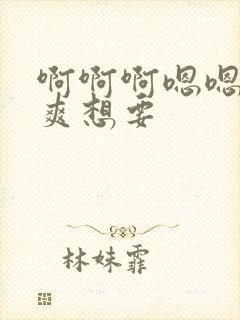 啊啊啊嗯嗯
爽想要
林妹霏